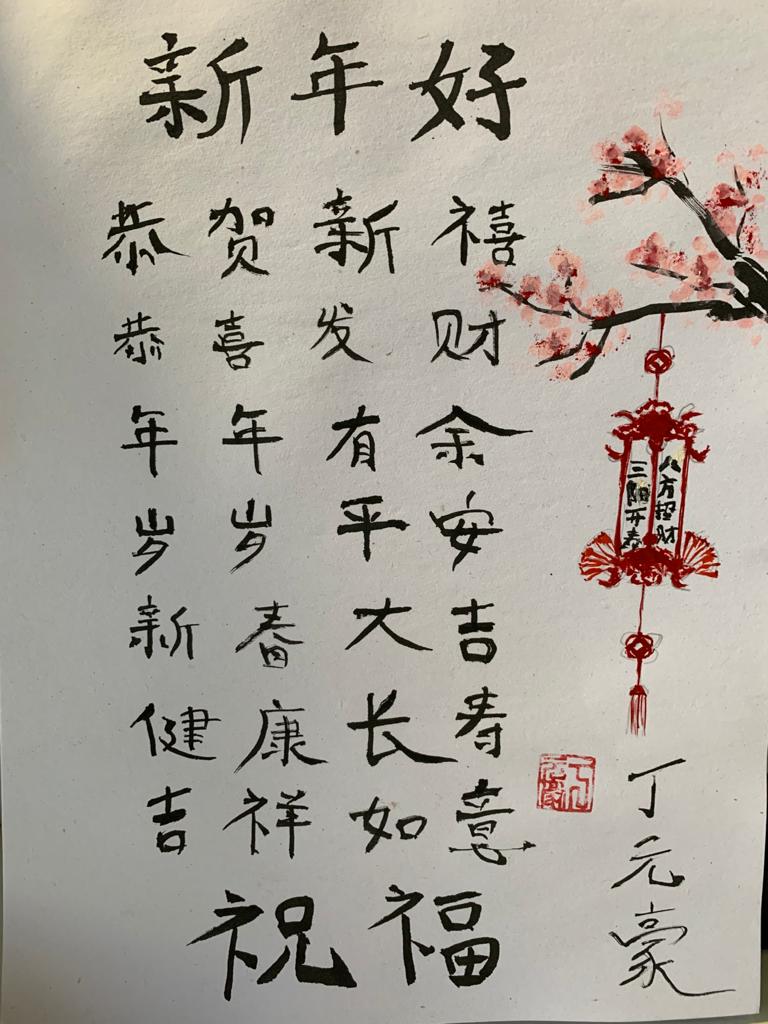 新年好
恭贺新禧
恭喜发财
年年有余
岁岁平安
新春大吉
健康长寿
吉祥如意
祝福
八方招财
三阳开泰
丁元豪
丁元豪